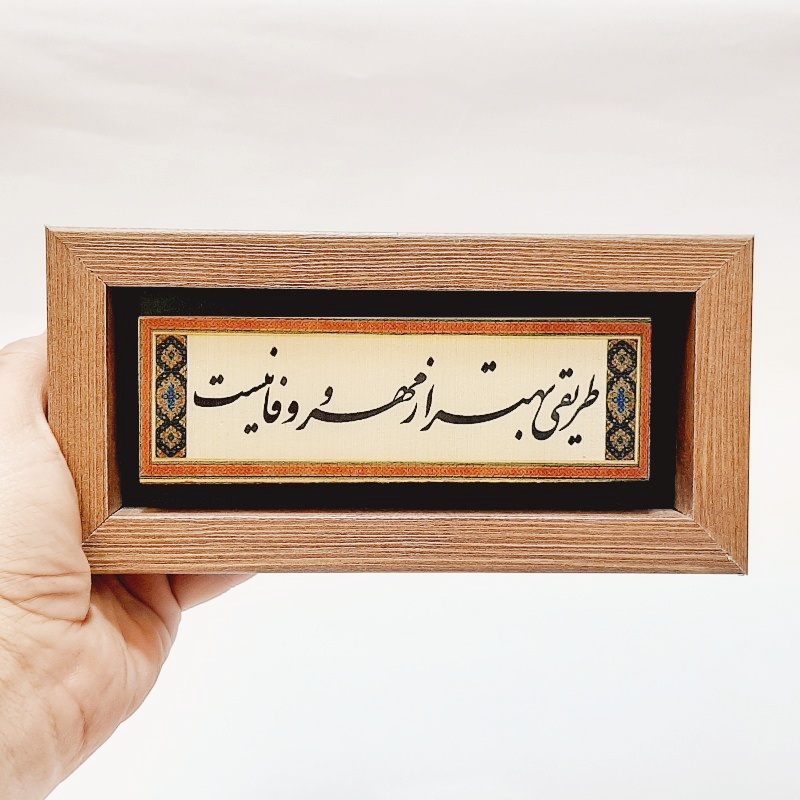 طریقی بهتر از مهر و وفا نیست